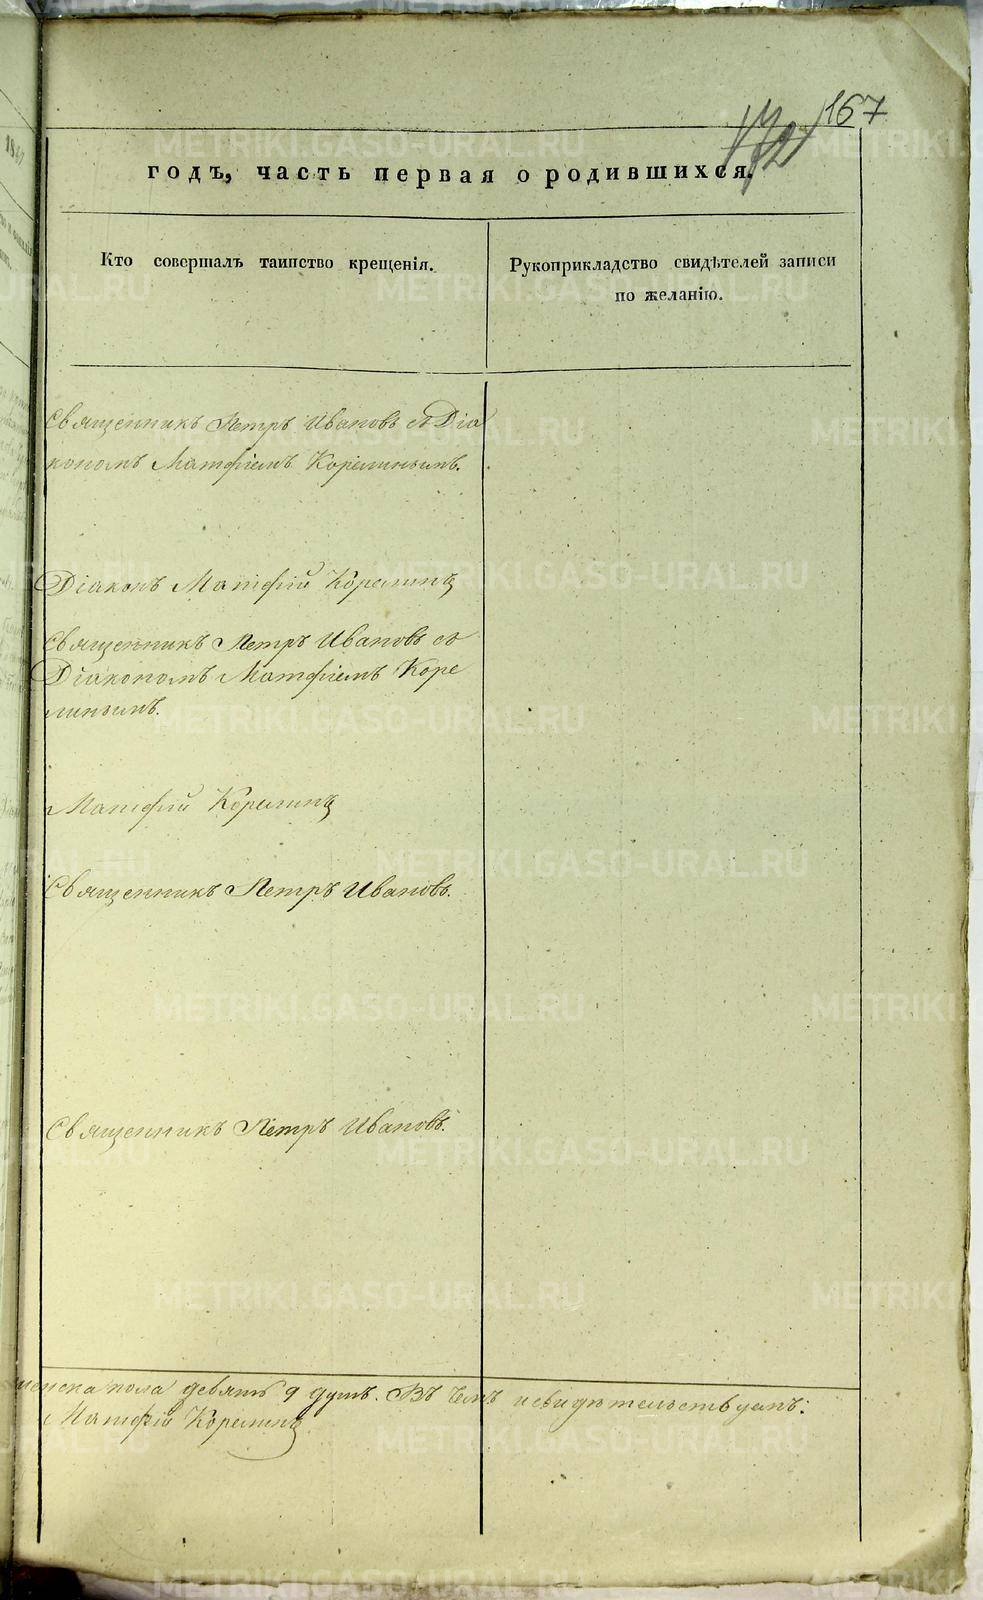 167
172
годъ, часть первая о родившихся.
Кто совершалъ таинство крещенія.
Рукоприкладство свидѣтелей записи
по желанію.
Священникъ Петръ Ивановъ съ Діа
кономъ Матфіемъ Корелинымъ.
Діаконъ Матфій Корелинъ
Священникъ Петръ Ивановъ съ
Діакономъ Матфіемъ Коре
линымъ.
Матфій Корелинъ
Священникъ Петръ Ивановъ.
Священникъ Петръ Ивановъ.
женска пола девять 9 душъ. Въ чемъ и свидѣтельствуемъ:
Матфій Корелинъ
METRIKI.GASO-URAL.RU